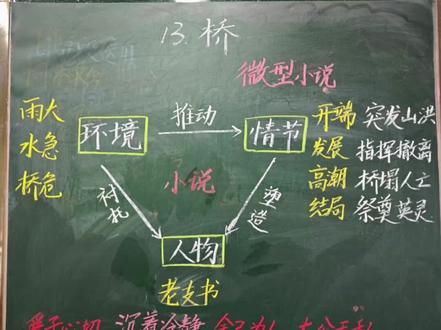 13.桥
微型小说
雨大
水急
桥危
环境
推动
情节
开端 突发山洪
发展 指挥撤离
高潮 桥塌人亡
结局 祭奠英灵
小说
衬托
塑造
人物
老支书
沉着冷静